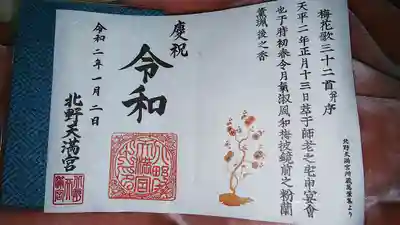 梅花歌三十二首并序
天平二年正月十三日萃于師老之宅申宴會
也于時初春令月氣淑風和梅披鏡前之粉蘭
薫珮後之香
北野天満宮所蔵萬葉集より
慶祝
令和
令和二年一月二日
北野天満宮